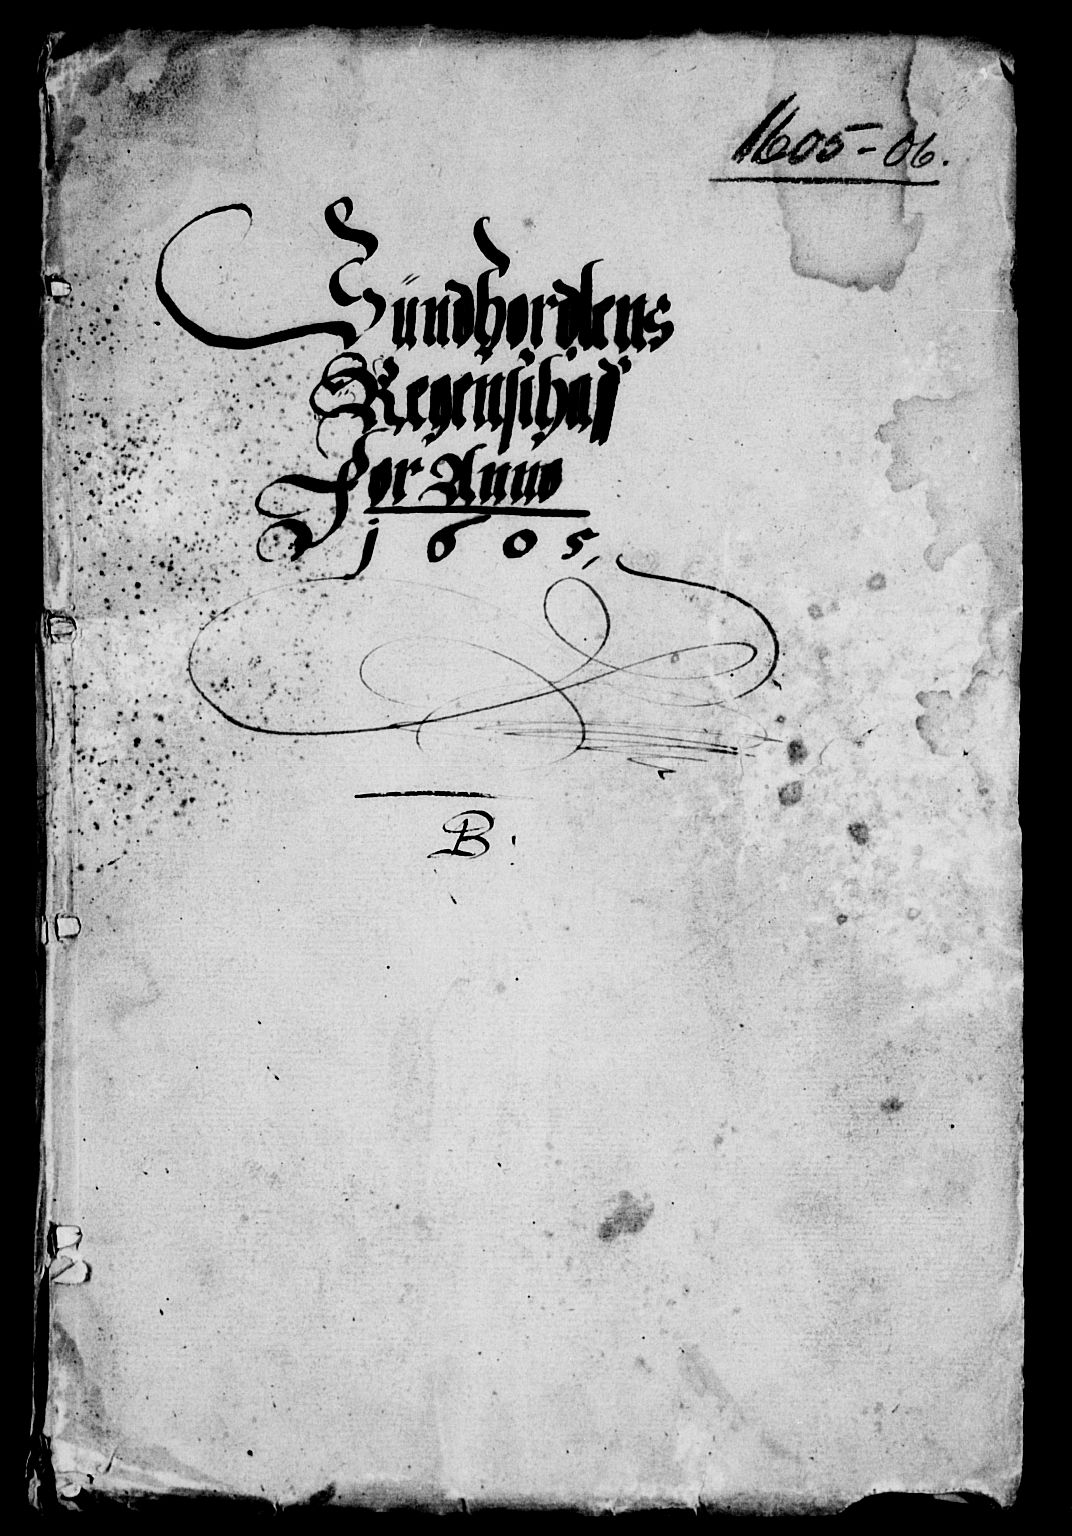 1605-06.
Sündhordlens
Regenskas
For Anno
1605,
B.